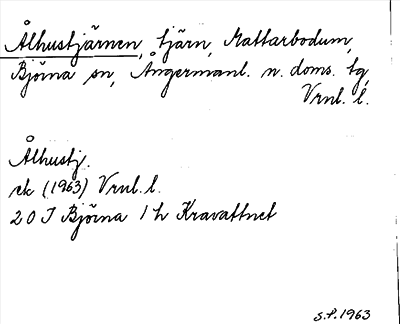 Ålhustjärnen, tjärn, Mattarbodum,
Björna sn, Ångermanl. n. doms. tg,
Vrnl. l.
Ålhustj.
ek (1963) Vrnl. l.
20 I Björna 1 h Kravattnet
S.F. 1963